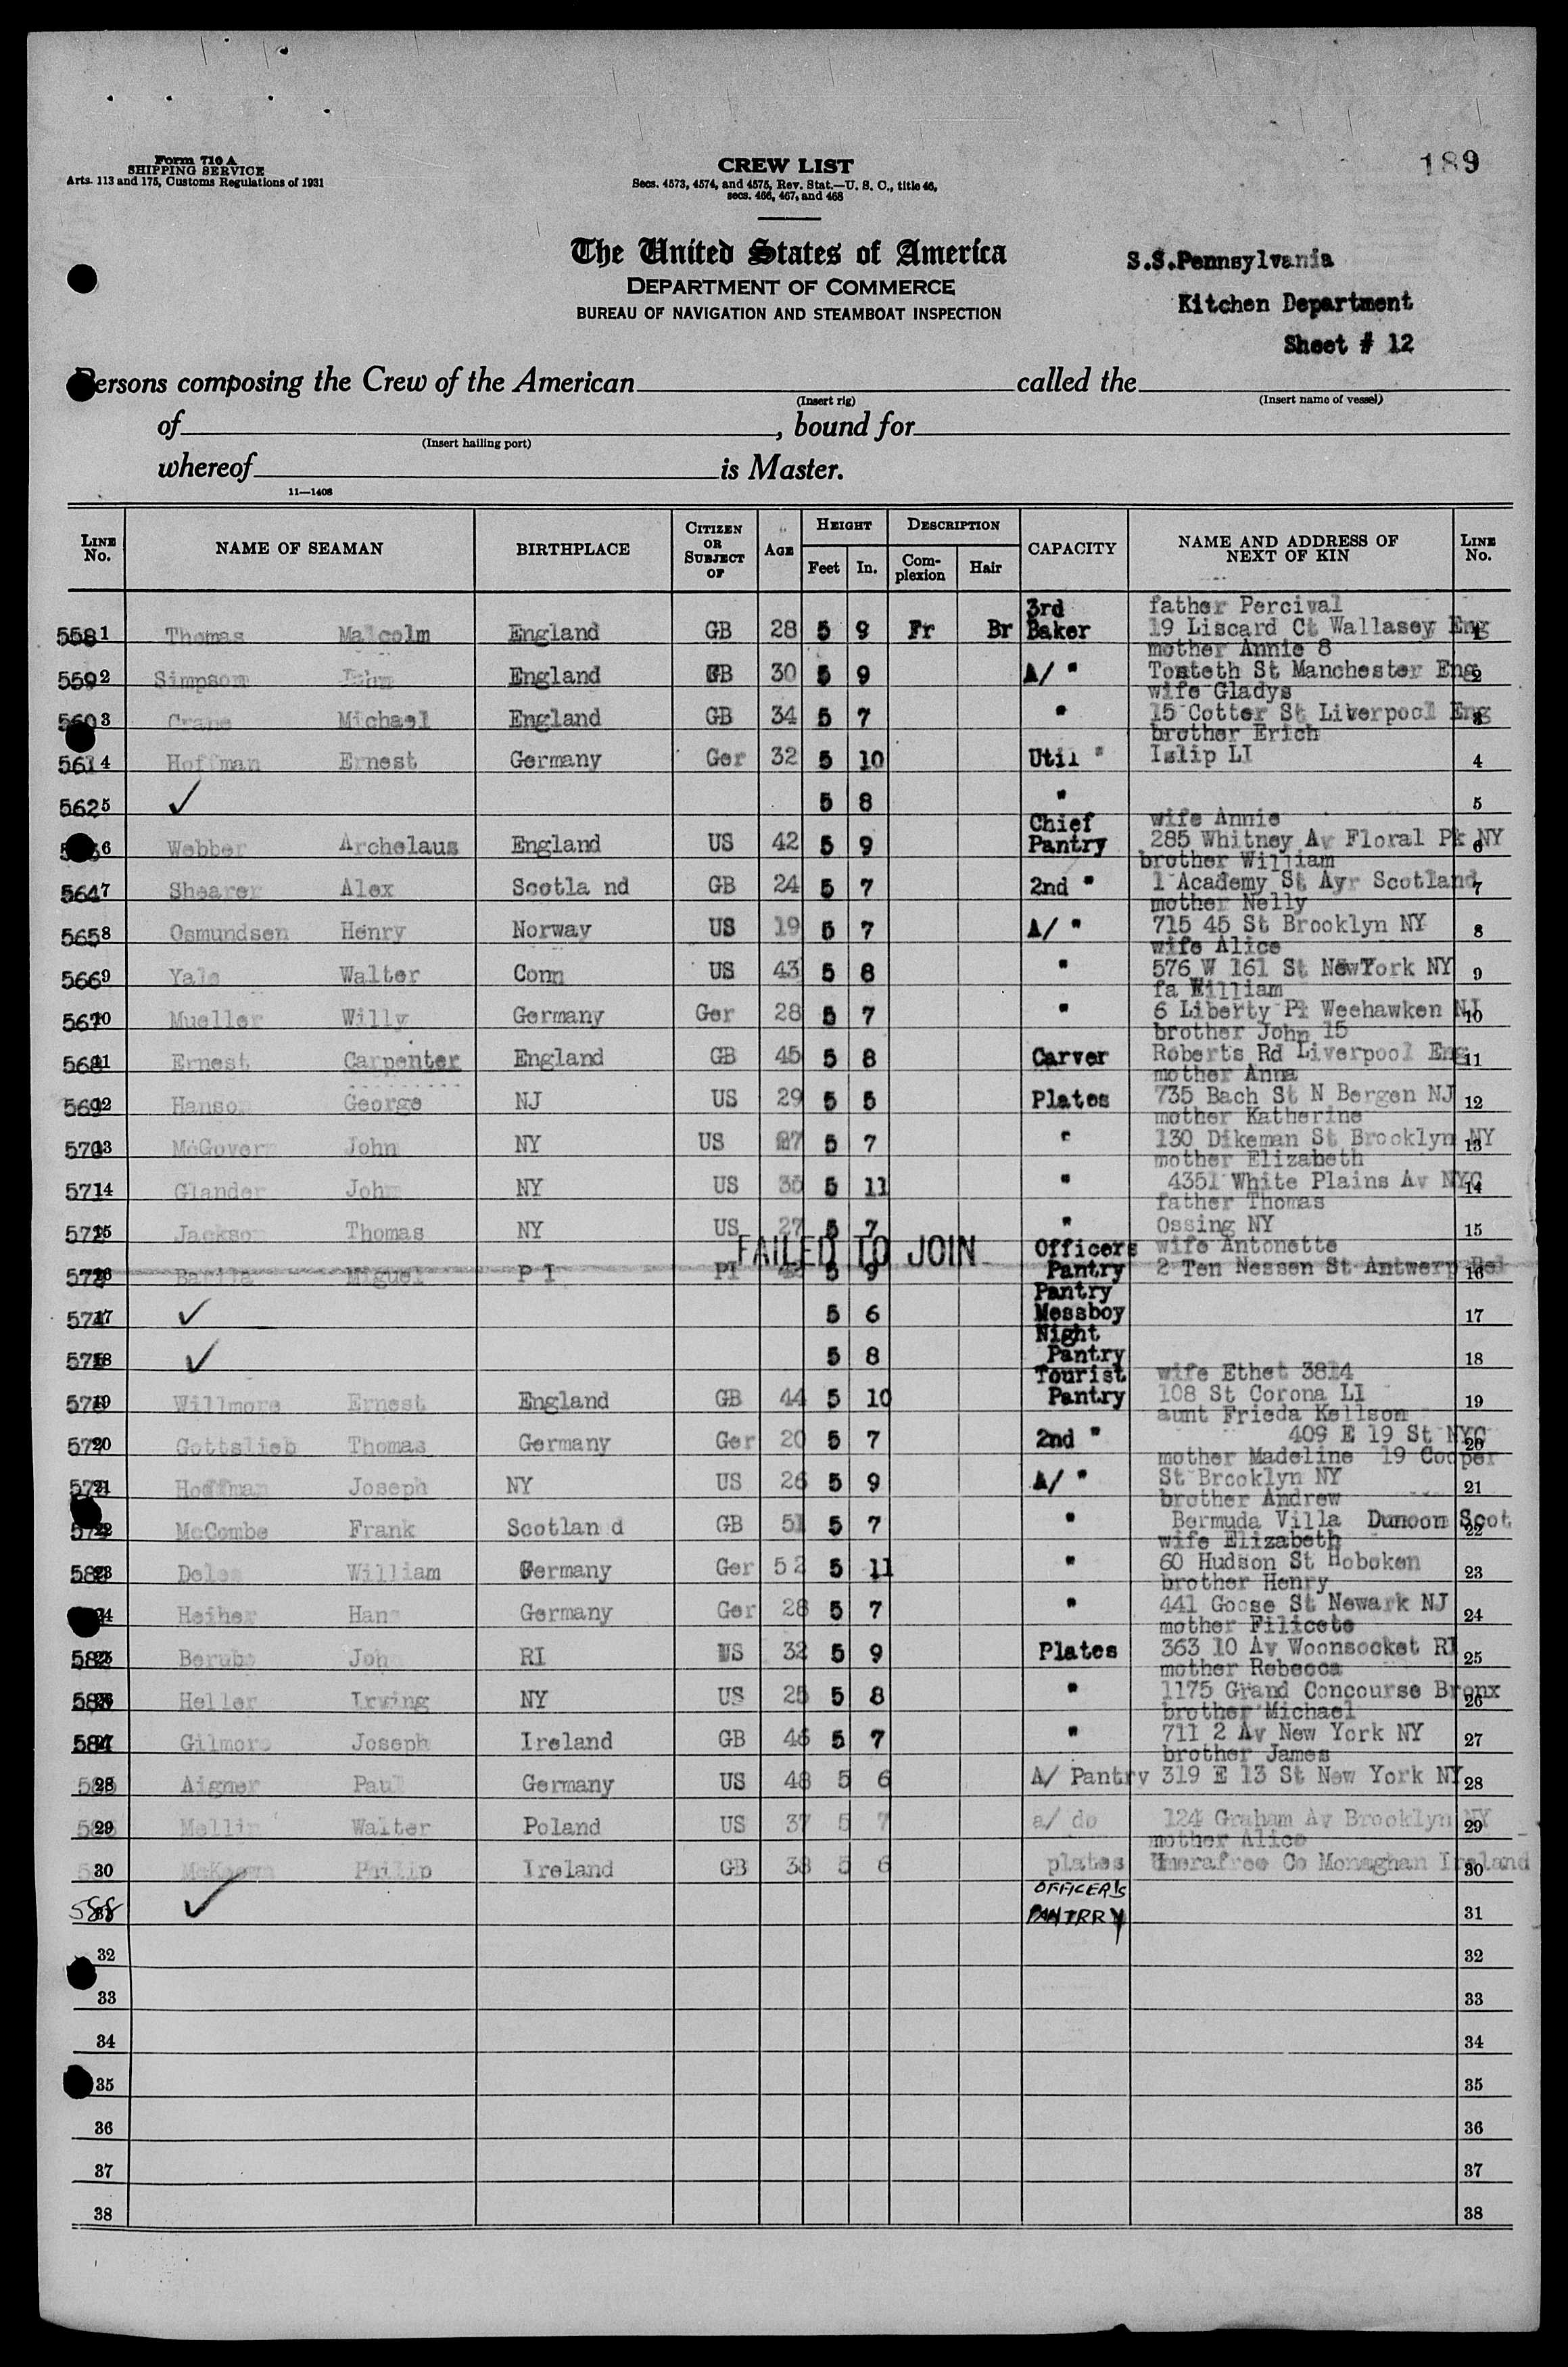 Form 710 A
SHIPPING SERVICE
Arts. 113 and 175, Customs Regulations of 1931
CREW LIST
Secs. 4573, 4574, and 4575, Rev. Stat.—U. S. C., title 46,
secs. 466, 467, and 468
189
The United States of America
DEPARTMENT OF COMMERCE
BUREAU OF NAVIGATION AND STEAMBOAT INSPECTION
S.S.Pennsylvania
Kitchen Department
Sheet # 12
Persons composing the Crew of the American called the
(Insert rig) (Insert name of vessel)
of , bound for
(Insert hailing port)
whereof is Master.
11—1408
LINE No. NAME OF SEAMAN BIRTHPLACE CITIZEN OR SUBJECT OF AGE HEIGHT Feet In. DESCRIPTION Complexion Hair CAPACITY NAME AND ADDRESS OF NEXT OF KIN LINE No.
3rd father Percival
558 1 Thomas Malcolm England GB 28 5 9 Fr Br Baker 19 Liscard Ct Wallasey Eng 1
mother Annie 8
559 2 Simpson John England GB 30 5 9 A/ " St Manchester Eng 2
wife Gladys
560 3 Crane Michael England GB 34 5 7 " 15 Cotter St Liverpool Eng 3
brother Erich
561 4 Hoffman Ernest Germany Ger 32 5 10 Util " Islip LI 4
562 5 ✓ 5 8 " 5
Chief wife Annie
6 Webber Archelaus England US 42 5 9 Pantry 285 Whitney Av Floral Pk NY 6
brother William
564 7 Shearer Alex Scotla nd GB 24 5 7 2nd " 1 Academy St Ayr Scotland 7
mother Nelly
565 8 Osmundsen Henry Norway US 19 5 7 A/ " 715 45 St Brooklyn NY 8
wife Alice
566 9 Yale Walter Conn US 43 5 8 " 576 W 161 St NewYork NY 9
fa William
567 10 Mueller Willy Germany Ger 28 5 7 " 6 Liberty Pl Weehawken NJ 10
brother John 15
568 11 Ernest Carpenter England GB 45 5 8 Carver Roberts Rd Liverpool Eng 11
mother Anna
569 12 Hanson George NJ US 29 5 5 Plates 735 Bach St N Bergen NJ 12
mother Katherine
570 13 McGovern John NY US 27 5 7 " 130 Dikeman St Brooklyn NY 13
mother Elizabeth
571 14 Glander John NY US 35 5 11 " 4351 White Plains Av NYC 14
father Thomas
572 15 Jackson Thomas NY US 27 5 7 " Ossing NY 15
FAILED TO JOIN
Officers wife Antonette
573 16 Barila Miguel P I PI 5 9 Pantry 2 Ten Nessen St Antwerp Bel 16
Pantry
574 17 ✓ 5 6 Messboy 17
Night
575 18 ✓ 5 8 Pantry 18
Tourist wife Ethet 3814
576 19 Willmore Ernest England GB 44 5 10 Pantry 108 St Corona LI 19
aunt Frieda Kellson
577 20 Gottslieb Thomas Germany Ger 20 5 7 2nd " 409 E 19 St NYC 20
mother Madeline 19 Cooper
578 21 Hoffman Joseph NY US 26 5 9 A/ " St Brooklyn NY 21
brother Andrew
579 22 McCombe Frank Scotlan d GB 51 5 7 " Bermuda Villa Dunoon Scot 22
wife Elizabeth
580 23 William Germany Ger 52 5 11 " 60 Hudson St Hoboken 23
brother Henry
24 Heiher Hans Germany Ger 28 5 7 " 441 Goose St Newark NJ 24
mother Filicete
582 25 Berube John RI US 32 5 9 Plates 363 10 Av Woonsocket RI 25
mother Rebecca
583 26 Heller Irving NY US 25 5 8 " 1175 Grand Concourse Bronx 26
brother Michael
584 27 Gilmore Joseph Ireland GB 46 5 7 " 711 2 Av New York NY 27
brother James
585 28 Aigner Paul Germany US 48 5 6 A/ Pantry 319 E 13 St New York NY 28
29 Mellin Walter Poland US 37 5 7 a/ do 124 Graham Av Brooklyn NY 29
mother Alice
30 McKeown Philip Ireland GB 38 5 6 plates Co Monaghan Ireland 30
OFFICER'S
588 31 ✓ PANTRRY 31
32 32
33 33
34 34
35 35
36 36
37 37
38 38